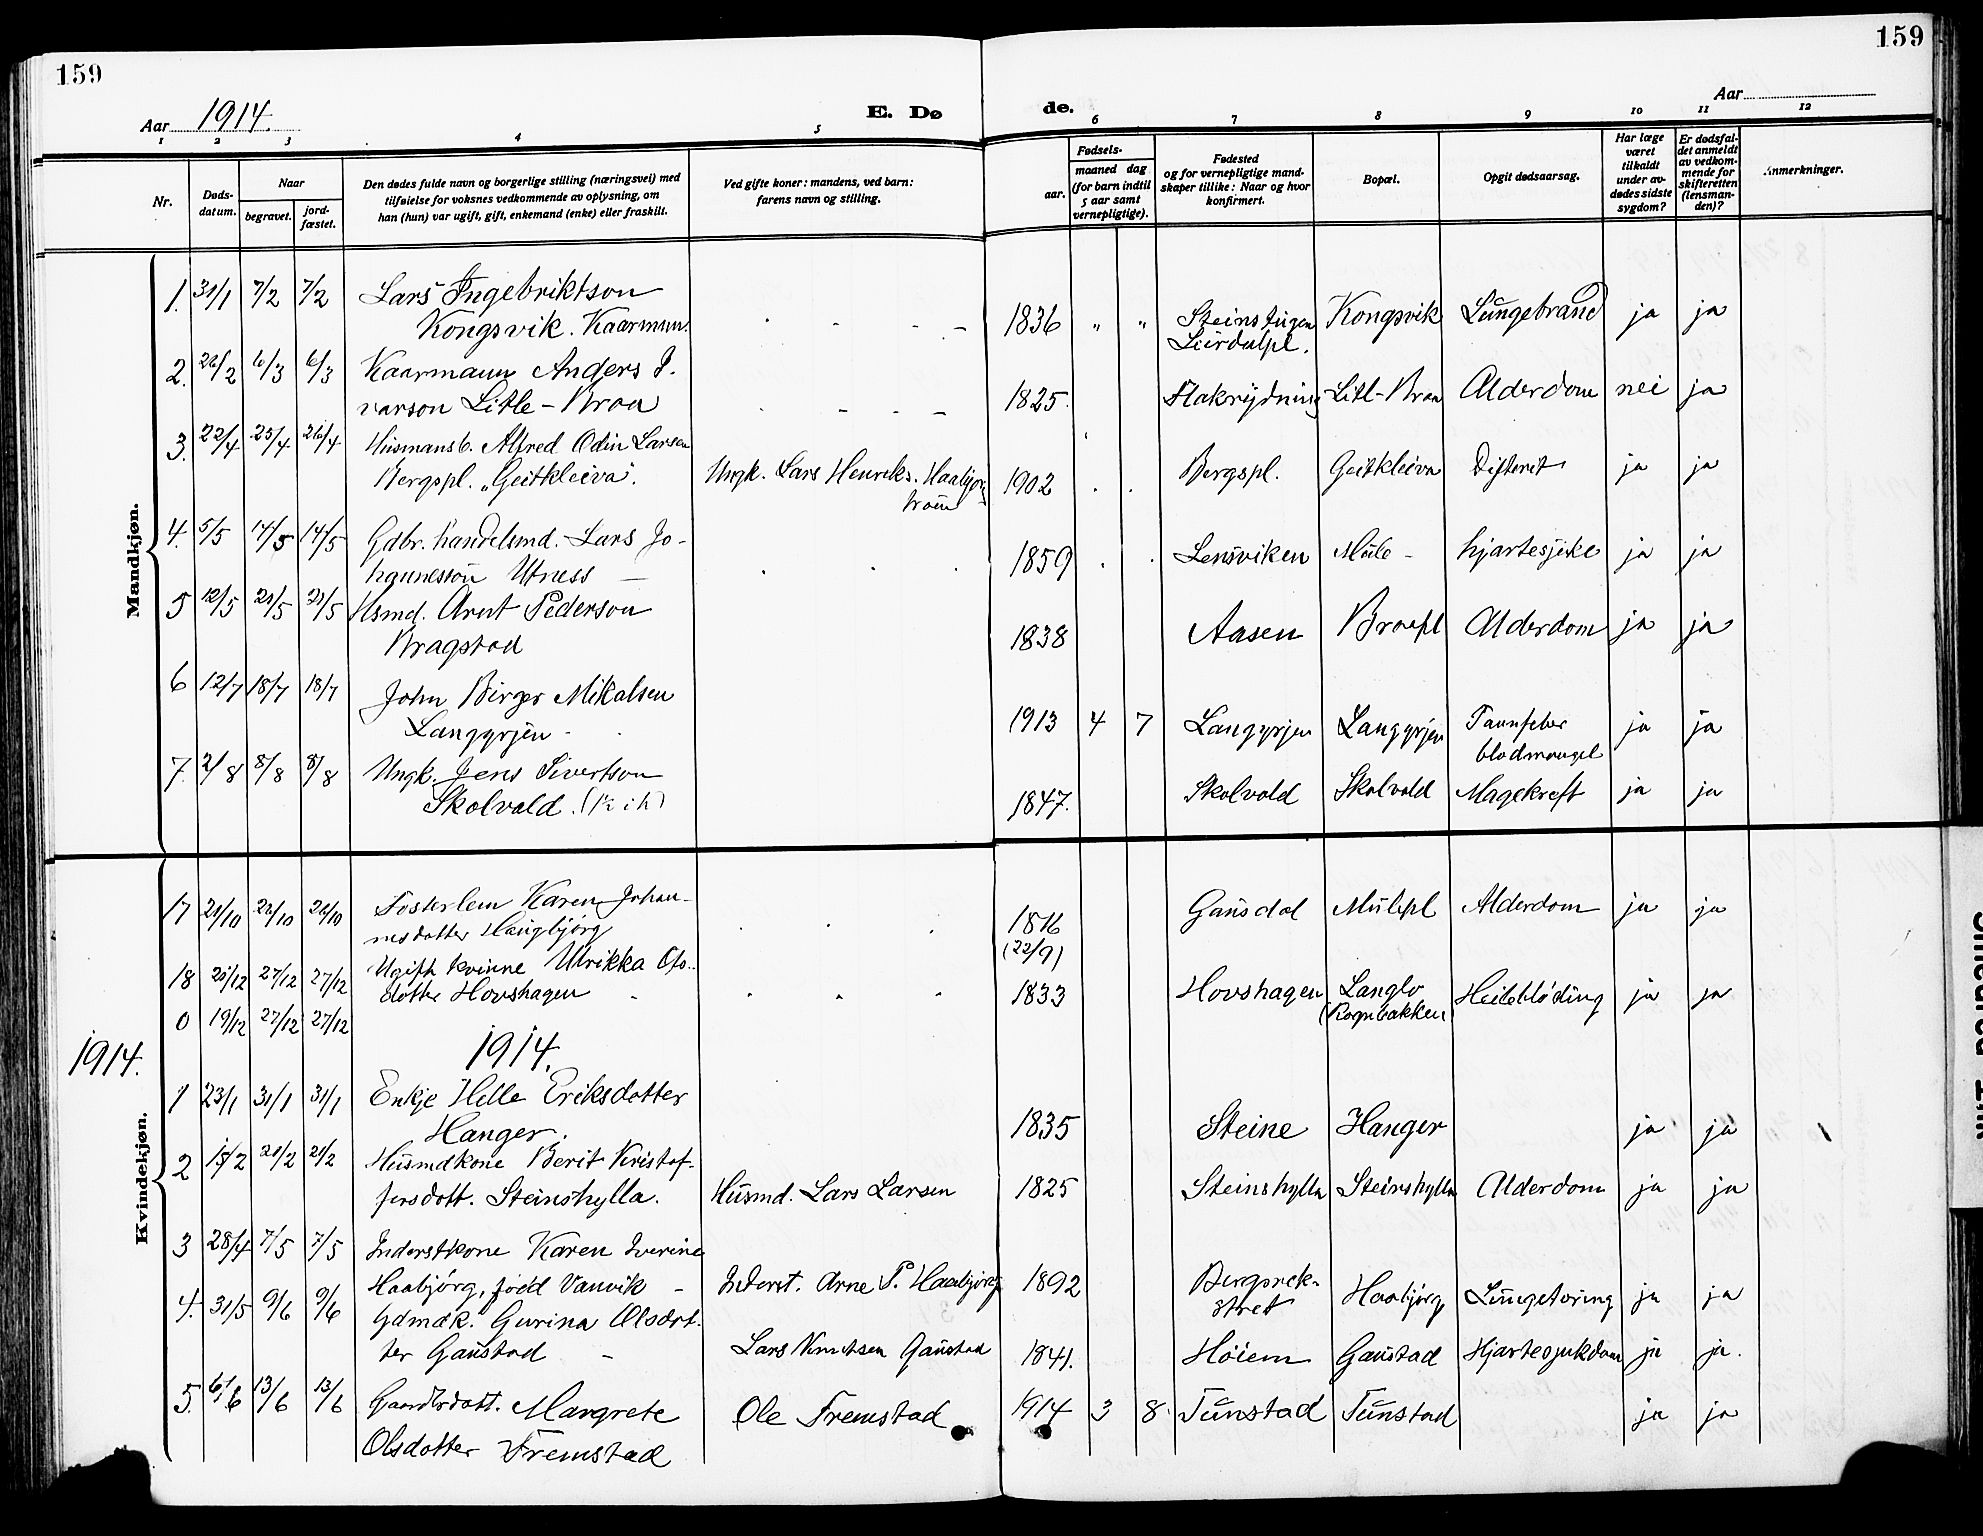 159
159
Aar 1914.
E. Dø
de.
Aar
1 2 3 4 5 6 7 8 9 10 11 12
Nr.
Døds-
datum.
Naar
begravet.
jord-
fæstet.
Den dødes fulde navn og borgerlige stilling (næringsvei) med
tilføielse for voksnes vedkommende av oplysning, om
han (hun) var ugift, gift, enkemand (enke) eller fraskilt.
Ved gifte koner: mandens, ved barn:
farens navn og stilling.
Fødsels-
aar.
maaned dag
(for barn indtil
5 aar samt
vernepligtige).
Fødested
og for vernepligtige mand-
skaper tillike: Naar og hvor
konfirmert.
Bopæl.
Opgit dødsaarsag.
Har læge
været
tilkaldt
under av-
dødes sidste
sygdom?
Er dødsfal-
det anmeldt
av vedkom-
mende for
skifteretten
(lensman-
den)?
Anmerkninger.
Mandkjøn.
1. 31/1 7/2 7/2 Lars Ingebriktson
Kongsvik. Kaarmann. 1836 " " Steinstugen Kongsvik Lungebrand ja ja
2. 26/2 6/3 6/3 Kaarmann Anders I-
varson Litle-Braa 1825. Hakrydning Litl-Braa Alderdom nei ja
3. 22/4 25/4 26/4 Husmansb. Alfred Odin Larsen
Bergspl. "Geitkleiva". Ungk. Lars Henriks. Haabjørg 1902 Bergspl. Geitkleiva Difterit ja ja
4. 5/5 14/5 14/5 Gdbr. handelsmd. Lars Jo-
hannesson Utness 1859 Lensviken Mule hjartesjuke ja ja
5 12/5 21/5 21/5 Hsmd. Arnt Pederson
Bragstad 1838 Aasen Braapl Alderdom ja ja
6 12/7 18/7 18/7 John Birger Mikalsen
Langyrjen 1913 4 7 Langyrjen Langyrjen Tannfeber ja ja
blodmangel
7. 2/8 8/8 8/8 Ungk. Jens Sivertson
Skolvold. 1847. Skolvold Skolvold Magekreft ja ja
17 21/10 26/10 26/10 Fosterlem Karen Johan-
nesdotter Haugbjørg 1816 Gausdal Mulepl Alderdom ja ja
(22/9)
18 21/12 27/12 27/12 Ugift kvinne Ulrikka Ols-
dotter Hovshagen 1833 Hovshagen Langlo Heilebløding ja ja
(Rognbakken)
0 19/12 27/12 27/12
1914.
1914.
Kvindekjøn.
1 23/1 31/1 31/1 Enkje Helle Eriksdotter
Hanger. 1835 Steine Hanger ja ja
2 15/2 21/2 21/2 Husmdkone Berit Kristof-
fersdott. Steinshylla. Husmd. Lars Larsen 1825 Steinshylla Steinshylla Alderdom ja ja
3 28/4 7/5 7/5 Inderstkone Karen Iverine
Haabjørg, född Vanvik Inderst. Arne P. Haabjørg 1892 Haabjørg Lungetæring ja ja
4. 31/5 9/6 9/6 Gdmdk. Gurina Olsdot-
ter Gaustad Lars Knutsen Gaustad 1841. Høiem Gaustad Hjartesjukdom ja ja.
5. 6/6 13/6 13/6 Gaardbrdott. Margrete
Olsdotter Fremstad Ole Fremstad 1914 3 8. Tunstad Tunstad ja ja